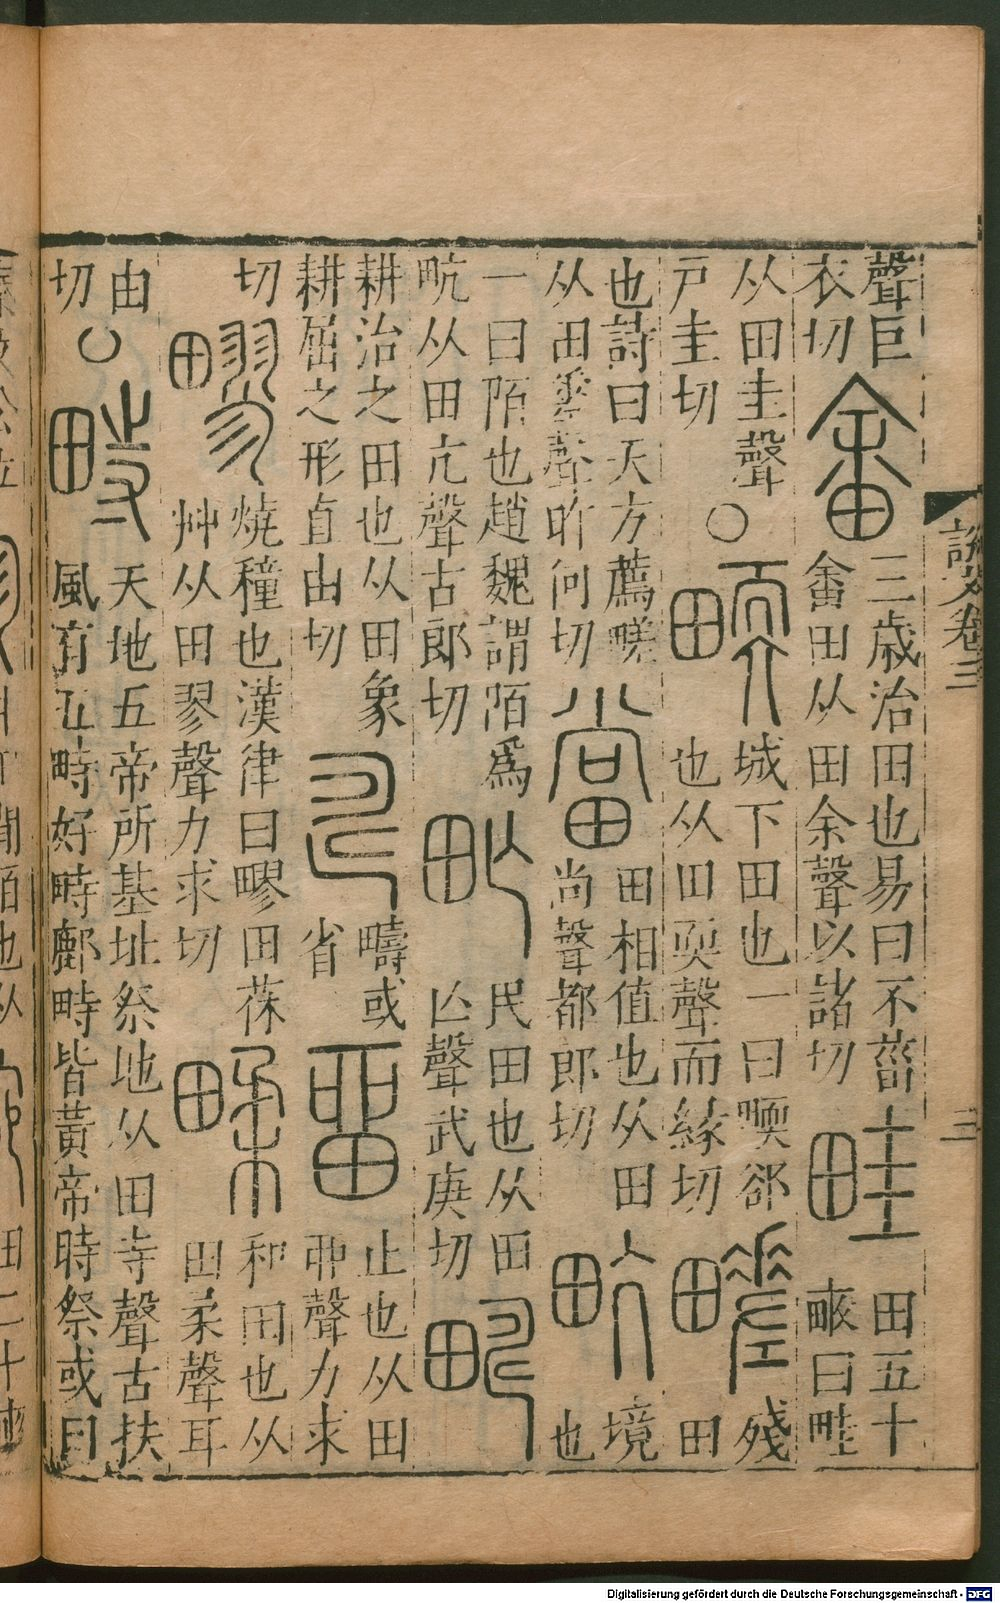 說文卷三
三
聲巨
衣切
畬
三歲治田也易曰不菑
畬田从田余聲以諸切
畦
田五十
畮曰畦
从田圭聲
戶圭切
○
㽭
城下田也一曰㬉郤
也从田耎聲而緣切
㽨
殘
田
也詩曰天方薦㽨
从田𡍮聲昨何切
當
田相值也从田
尚聲都郎切
畂
境
也
一曰陌也趙魏謂陌爲
畂从田亢聲古郎切
甿
民田也从田
亾聲武庚切
疇
耕治之田也从田象
耕屈之形直由切
𠃬
疇或
省
畱
止也从田
丣聲力求
切
疁
燒穜也漢律曰疁田茠
艸从田翏聲力求切
㽥
和田也从
田柔聲耳
由
切
○
畤
天地五帝所基址祭地从田寺聲古扶
風有五畤好畤鄜畤皆黃帝時祭或曰